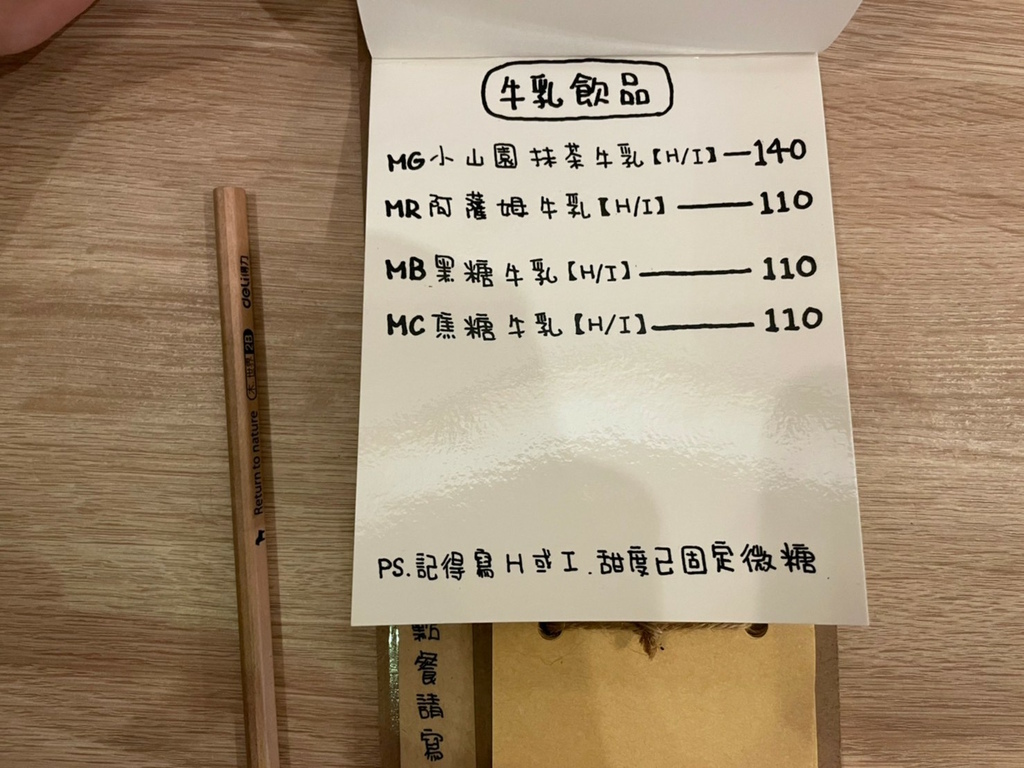 牛乳飲品
MG小山園抹茶牛乳【H/I】—140
MR阿薩姆牛乳【H/I】——110
MB黑糖牛乳【H/I】———110
MC焦糖牛乳【H/I】———110
PS.記得寫H或I.甜度已固定微糖
點餐請寫
deli得力
木世界 2B
Return to nature